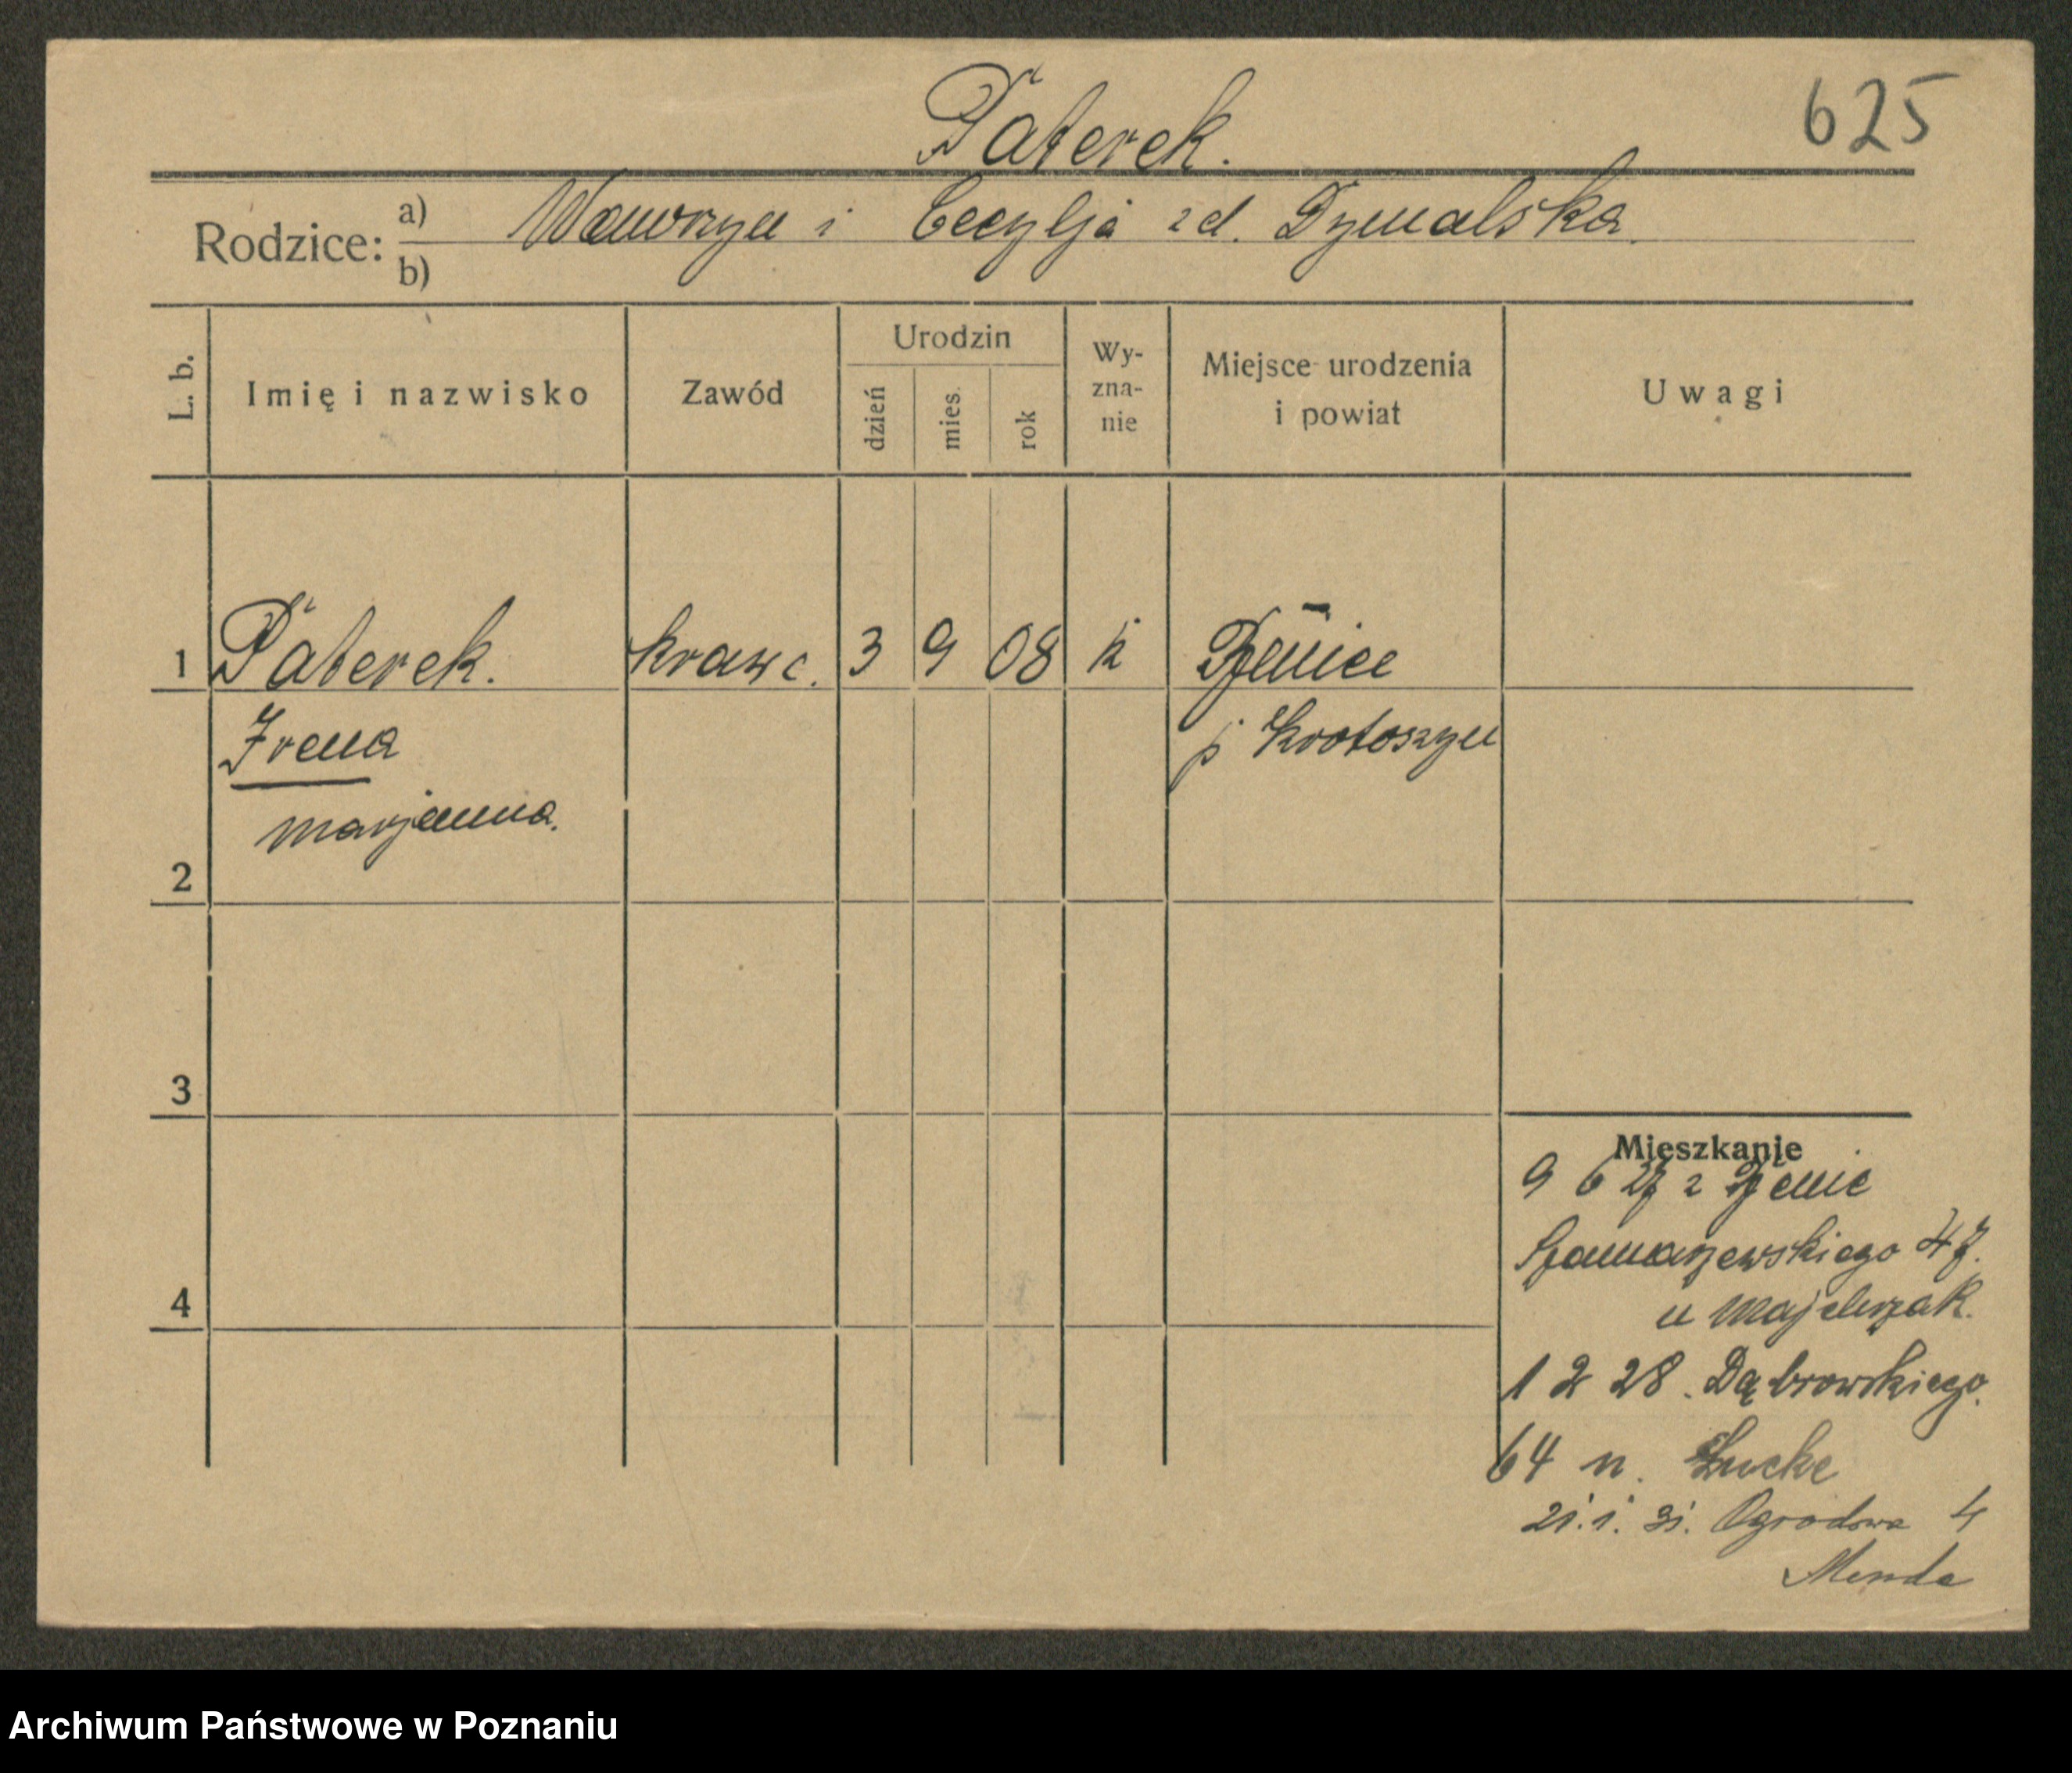 625
Paterek.
Rodzice: a) Wawrzyn i Cecylja zd. Dymalska.
b)
L. b.
Imię i nazwisko
Zawód
Urodzin
dzień
mies.
rok
Wy-
zna-
nie
Miejsce urodzenia
i powiat
Uwagi
1 Paterek. krawc. 3 9 08 k
Irena p Krotoszyn
marjanna.
2
3
4
Mieszkanie
9 6 27 z
Szamarzewskiego 47.
u Majchrzak.
1 2 28. Dąbrowskiego.
64 n. Lucke
21. 1. 31. Ogrodowa 4
Menda
Archiwum Państwowe w Poznaniu